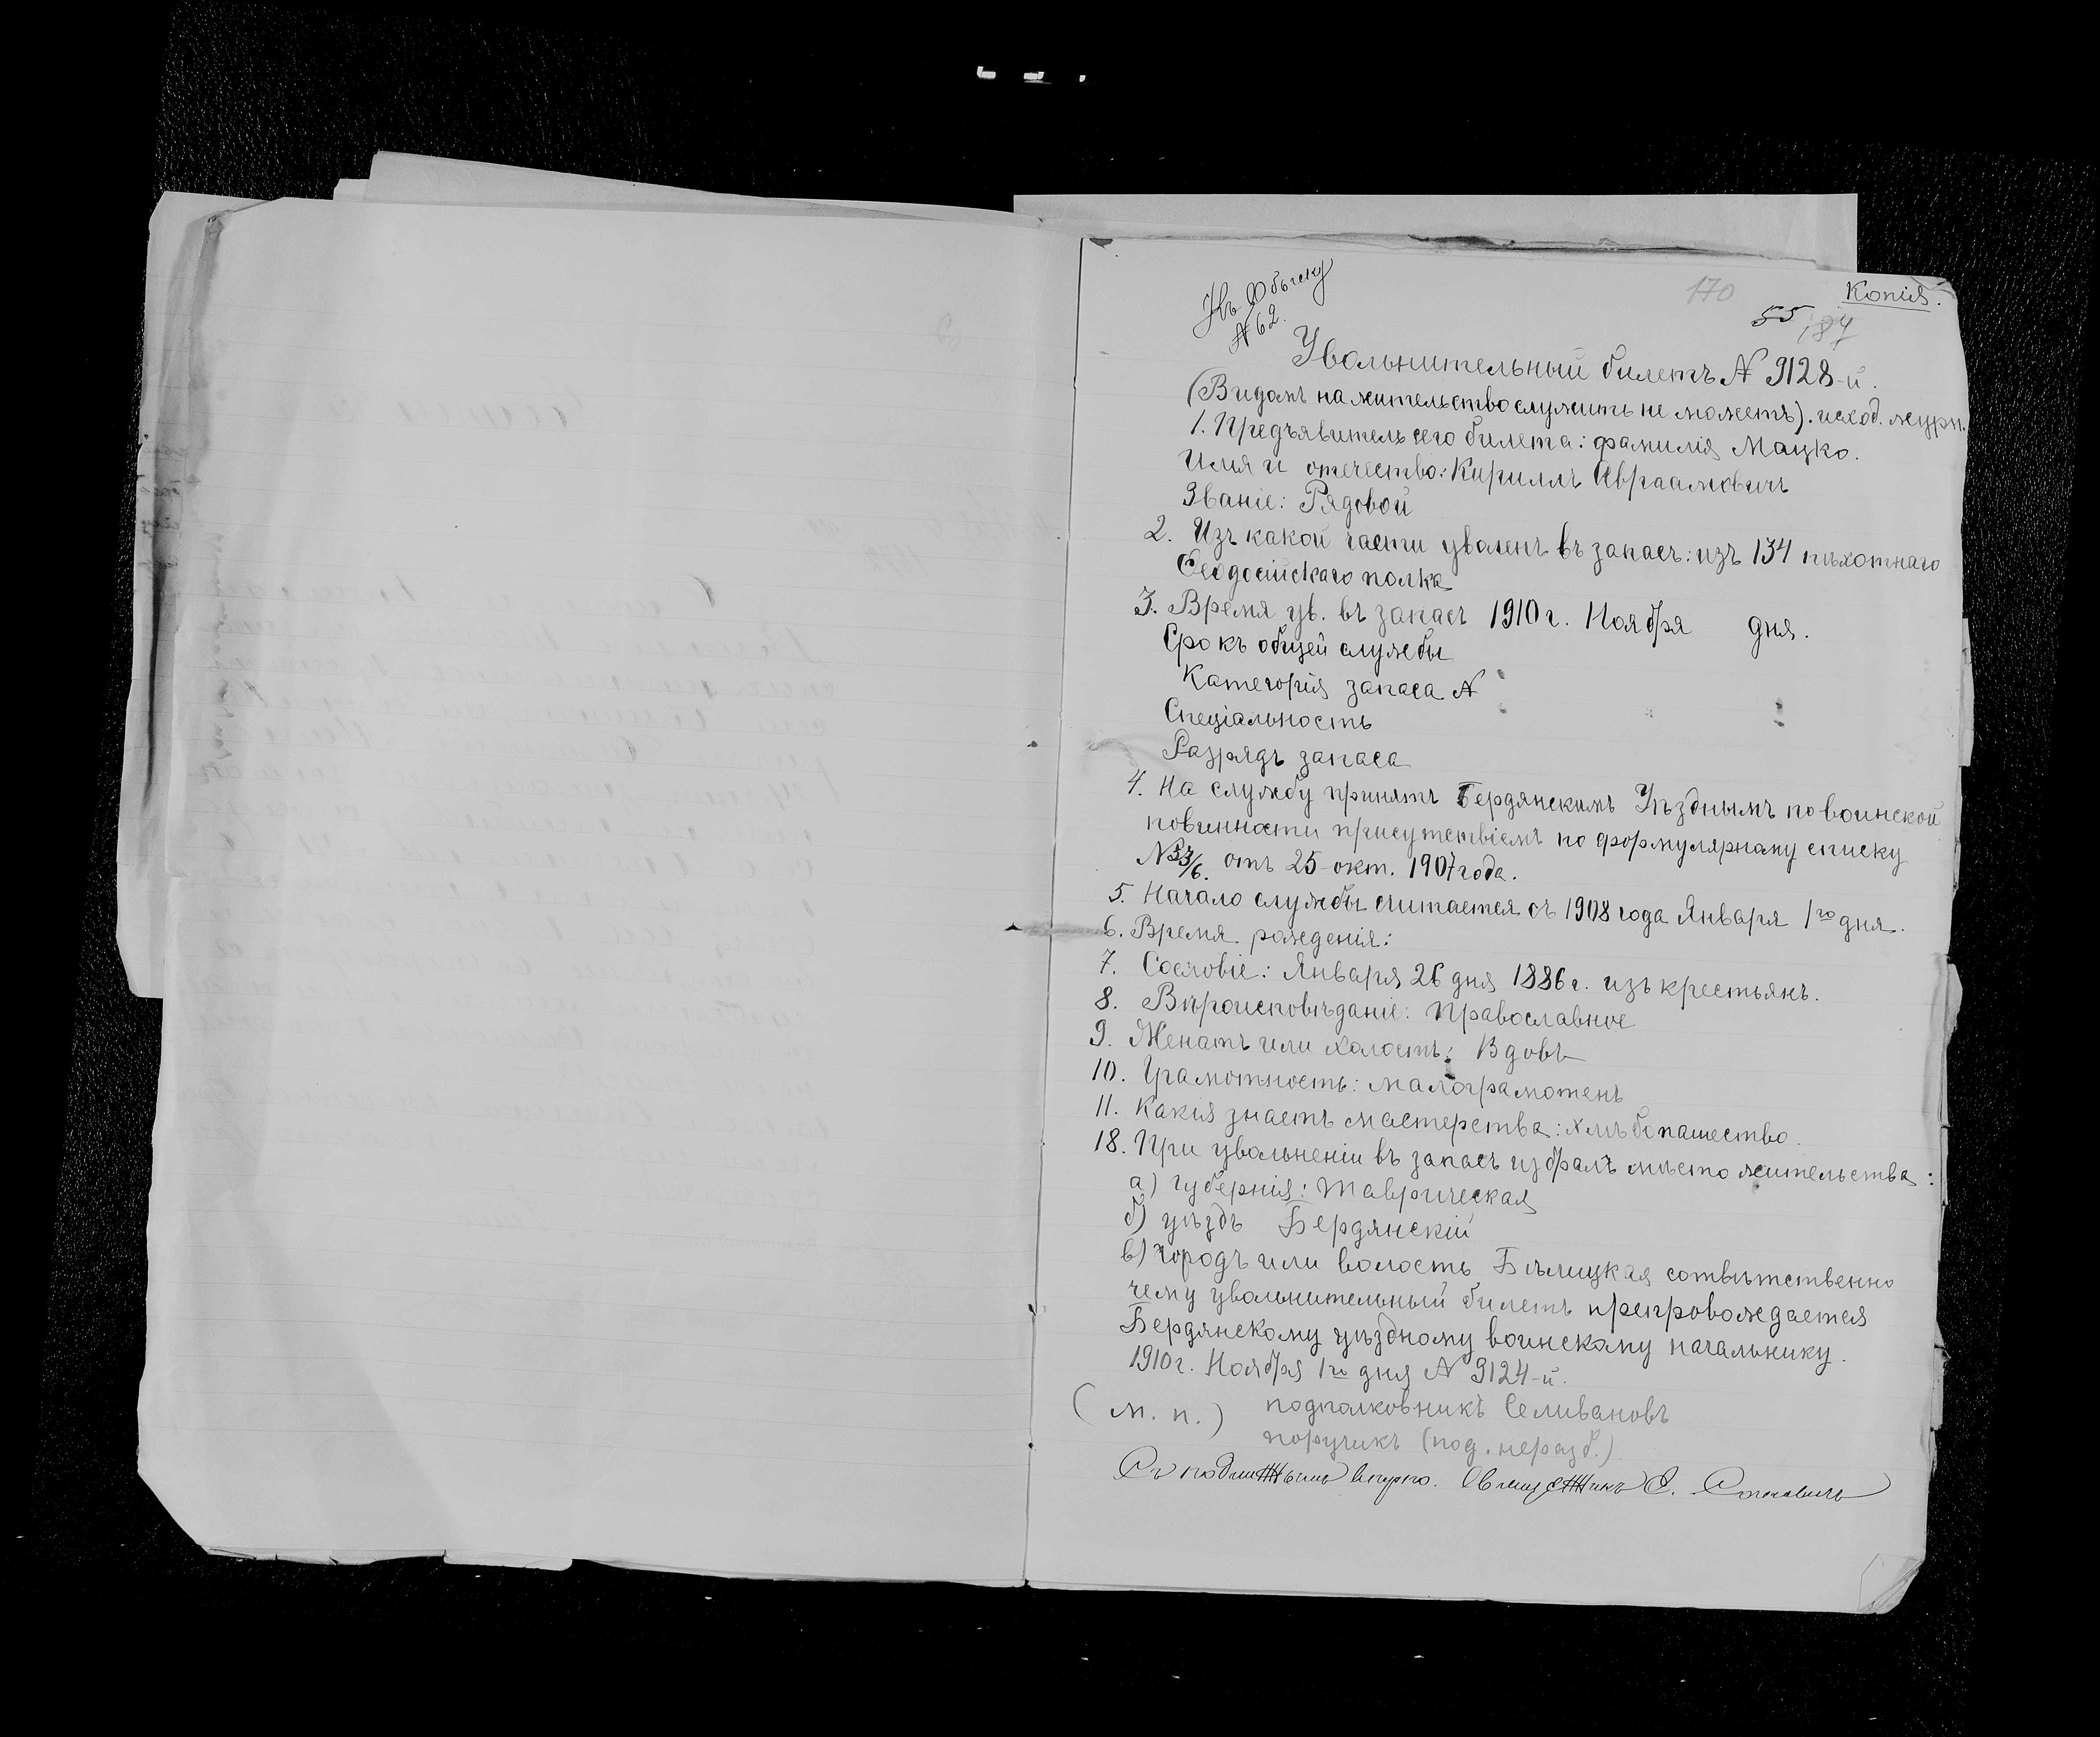 Копія.
170
55
187
Къ обыску
№ 62.
Увольнительный билетъ № 9128-й.
(Видомъ на жительство служить не можетъ). исход. журн.
1. Предъявитель сего билета: фамилія Мацко.
Имя и отечество: Кириллъ Авраамовичъ
Званіе: Рядовой
2. Изъ какой части уволенъ въ запасъ: изъ 134 пѣхотнаго
Ѳеодосійскаго полка
3. Время ув. въ запасъ 1910 г. Ноября дня.
Срокъ общей службы
Категорія запаса №
Спеціальность
Разрядъ запаса
4. На службу принятъ Бердянскимъ Уѣзднымъ по воинской
повинности присутствіемъ по формулярному списку
№ 33/6. отъ 25-окт. 1907 года.
5. Начало службы считается съ 1908 года Января 1го дня.
6. Время рожденія:
7. Сословіе: Января 26 дня 1886 г. изъ крестьянъ.
8. Вѣроисповѣданіе: Православное
9. Женатъ или холостъ: Вдовъ
10. Грамотность: малограмотенъ
11. Какія знаетъ мастерства: хлѣбопашество.
18. При увольненіи въ запасъ избралъ мѣсто жительства:
а) губернія: Таврическая
б) уѣздъ Бердянскій
в) городъ или волость Бѣлицкая сотвѣтственно
чему увольнительный билетъ препровождается
Бердянскому уѣздному воинскому начальнику.
1910 г. Ноября 1го дня № 9124-й.
(м. п.) подполковникъ Селивановъ
поручикъ (под. неразб.)
Съ подлиннымъ вѣрно. Священникъ